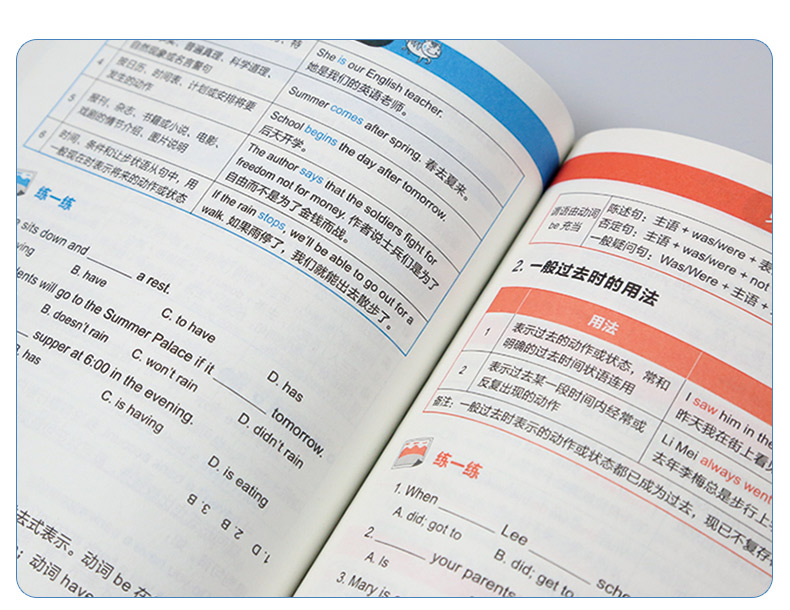 普遍真理、科学道理、
自然现象或名言警句
She is our English teacher.
她是我们的英语老师。
4
按日历、时间表、计划或安排将要
发生的动作
Summer comes after spring. 春去夏来。
School begins the day after tomorrow.
后天开学。
5
报刊、杂志、书籍或小说、电影、
戏剧的情节介绍，图片说明
The author says that the soldiers fight for
freedom not for money. 作者说士兵们是为了
自由而不是为了金钱而战。
6
时间、条件和让步状语从句中，用
一般现在时表示将来的动作或状态
If the rain stops, we'll be able to go out for a
walk. 如果雨停了，我们就能出去散步了。
练一练
sits down and ______ a rest.
B. have
C. to have
D. has
will go to the Summer Palace if it ______ tomorrow.
B. doesn't rain
C. won't rain
D. didn't rain
supper at 6:00 in the evening.
B. has
C. is having
D. is eating
1. D 2. B 3. B
式表示。动词 be 在
动词 have
谓语由动词
be 充当
陈述句：主语 + was/were + 表
否定句：主语 + was/were + not
一般疑问句：Was/Were + 主语 +
2. 一般过去时的用法
用法
1
表示过去的动作或状态，常和
明确的过去时间状语连用
I saw him in the
昨天我在街上看见
2
表示过去某一段时间内经常或
反复出现的动作
Li Mei always went
去年李梅总是步行上
备注：一般过去时表示的动作或状态都已成为过去，现已不复存
练一练
1. When ______ Lee ______ scho
A. did; got to
B. did; get to
2. ______ your parents
A. Is
3. Mary is